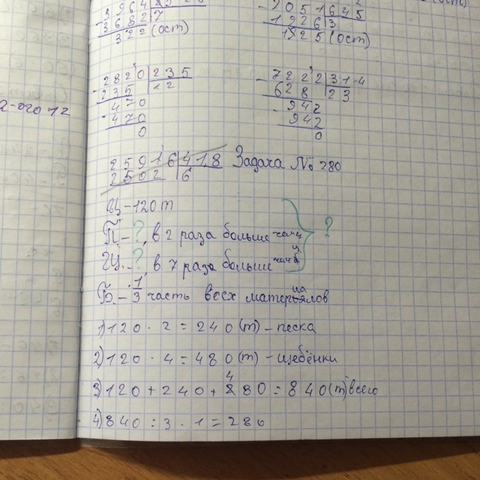 3682 7
322 (ост)
2051 645
1926 3
125 (ост)
2820 235
235 12
470
470
0
7222 314
628 23
942
942
0
25016 418 Задача № 280
2502 6
Ц - 120 т
П - ?, в 2 раза больше чем ц
Щ. - ? в 7 раза больше чем
?
Б. - 1/3 часть всех материалов
1) 120 · 2 = 240 (т) - песка
2) 120 · 4 = 480 (т) - щебёнки
3) 120 + 240 + 480 = 840 (т) всего
4) 840 : 3 · 1 = 280